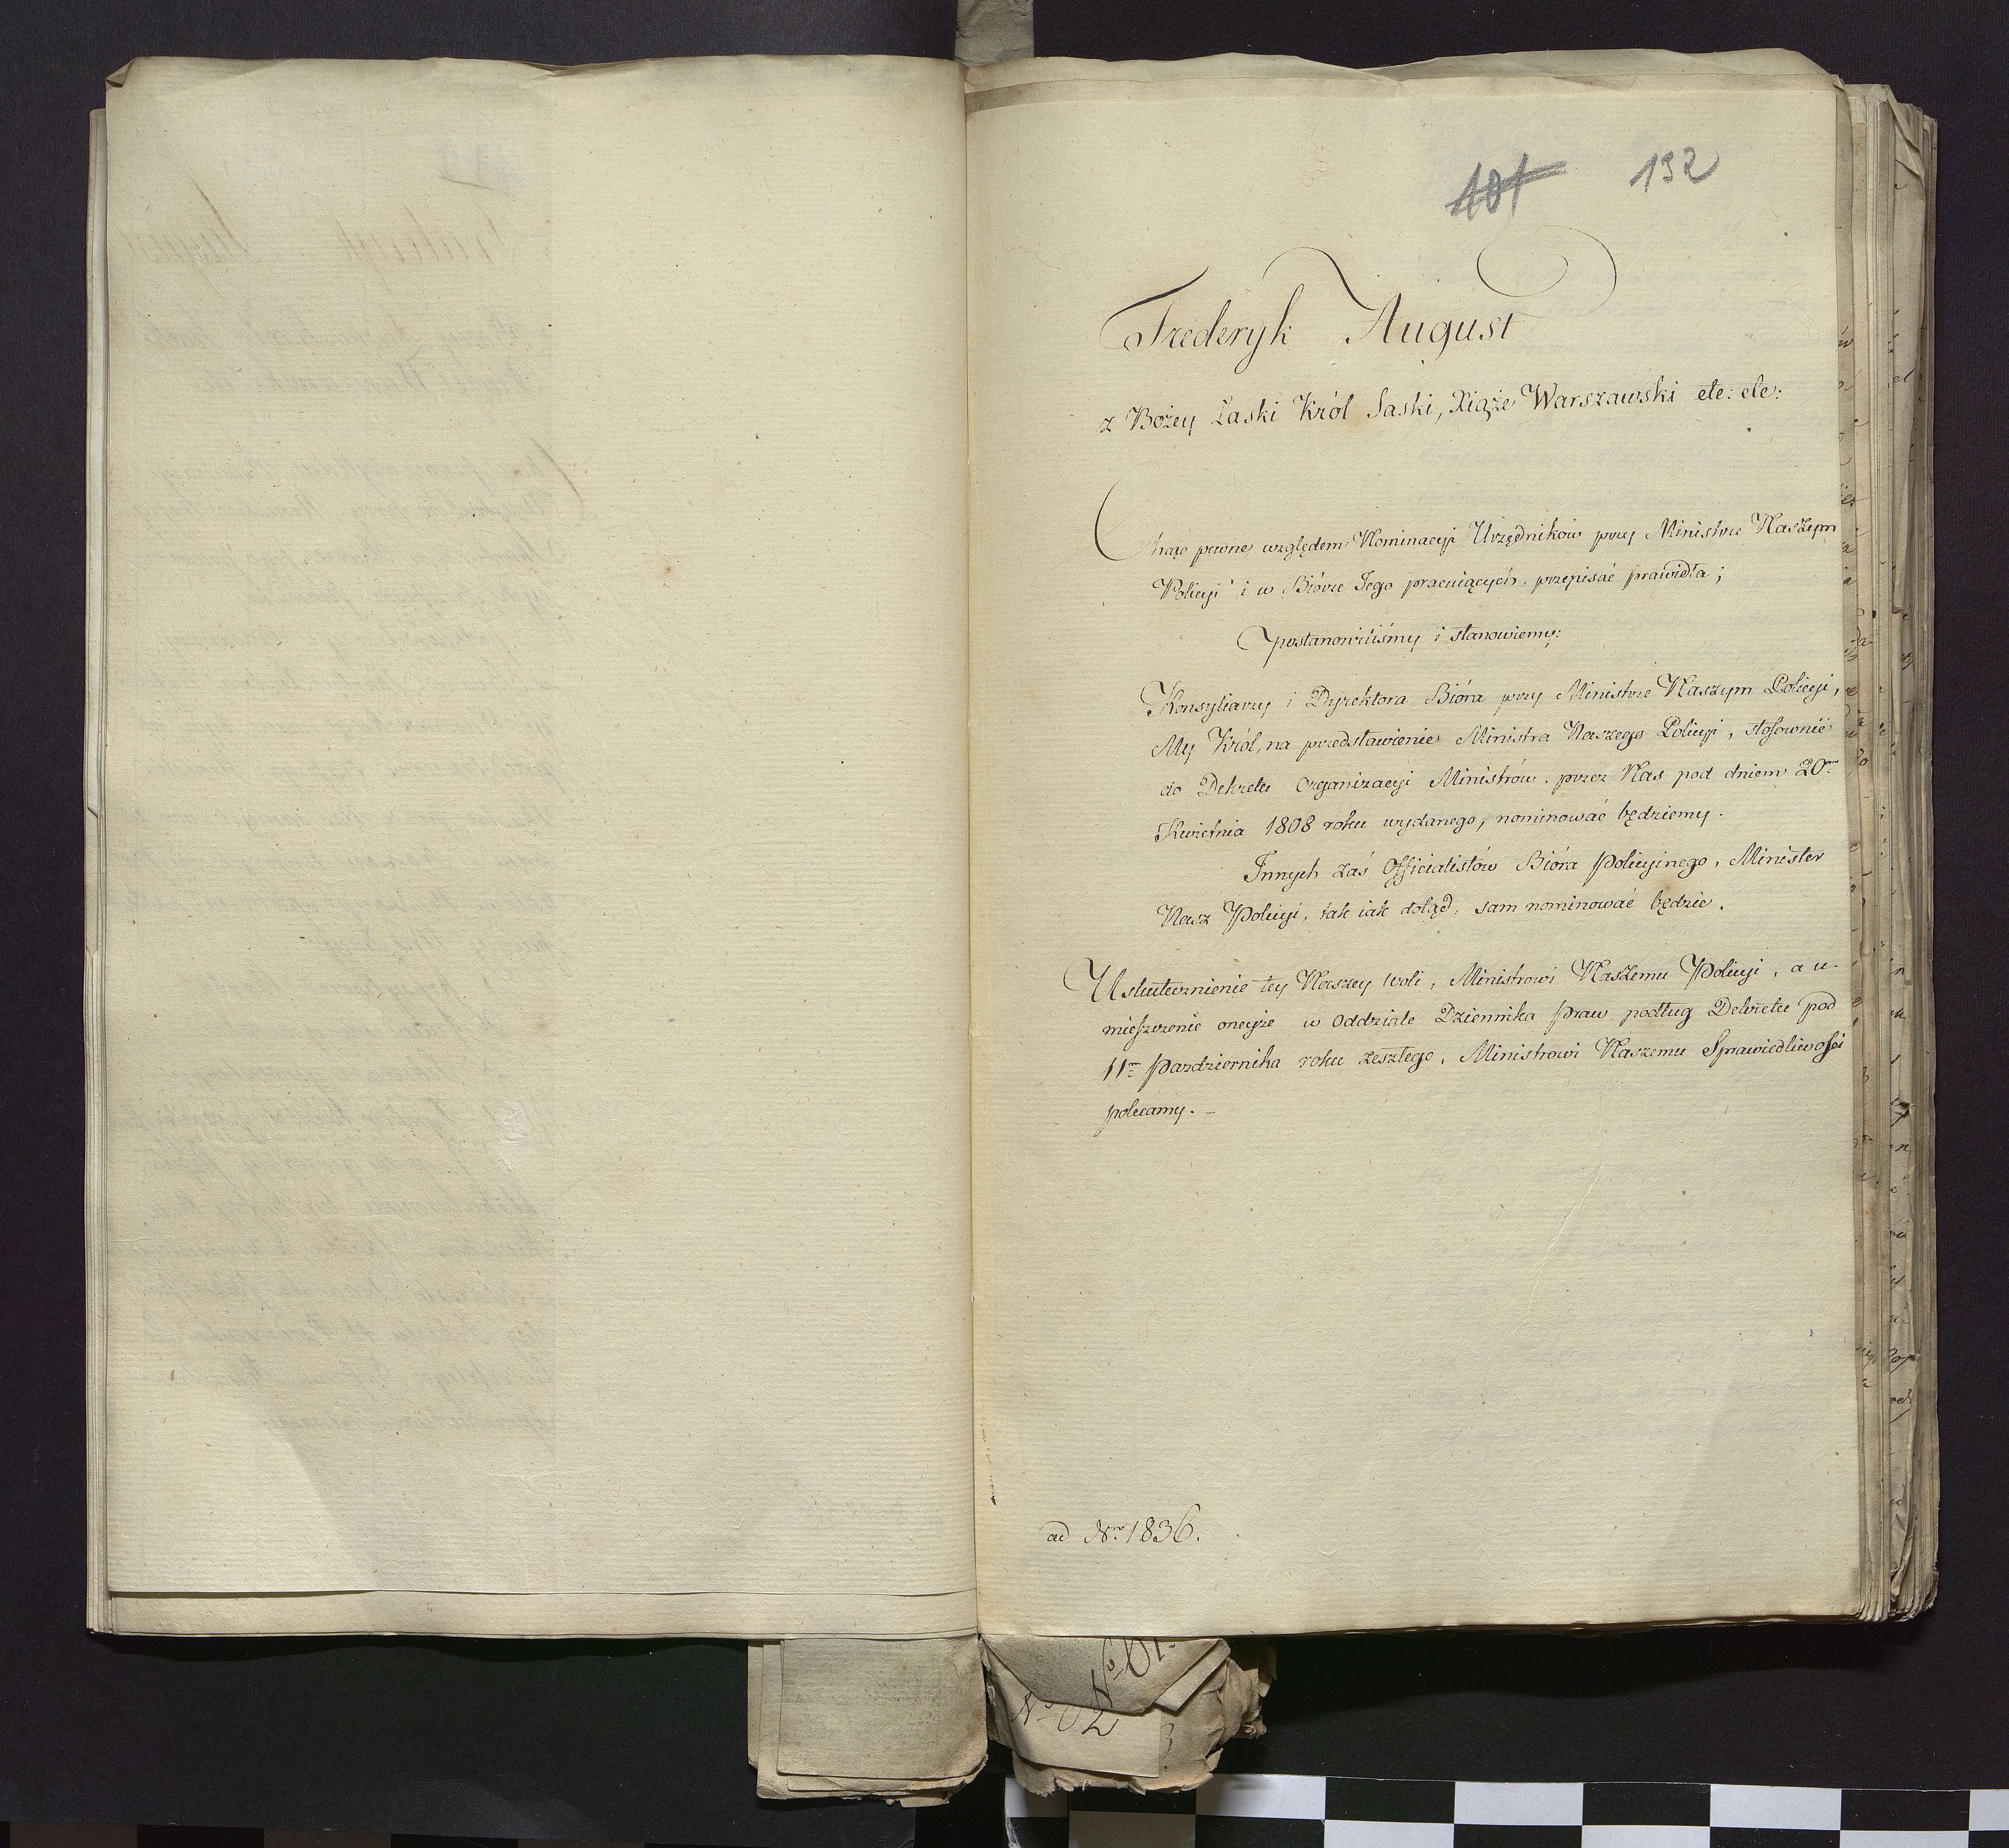 101 132
Frederyk August
z Bożey Łaski Król Saski, Xiąże Warszawski etc: etc:
Chcąc pewne względem Nominacyi Urzędników przy Ministrze Naszym
Policyi i w Biórze Jego pracuiących, przepisać prawidła;
postanowiliśmy i stanowiemy:
Konsyliarzy i Dyrektora Bióra przy Ministrze Naszym Policyi,
My Król, na przedstawienie Ministra Naszego Policyi, stosownie
do Dekretu Organizacyi Ministrów, przez Nas pod dniem 20m
Kwietnia 1808 roku wydanego, nominować będziemy.
Innych zaś Officialistów Bióra Policyinego, Minister
Nasz Policyi, tak iak dotąd, sam nominować będzie.
Uskutecznienie tey Naszey woli, Ministrowi Naszemu Policyi, a u-
mieszczenie oneyże w Oddziale Dziennika Praw podług Dekretu pod
11m Pazdziernika roku zeszłego, Ministrowi Naszemu Sprawiedliwości
polecamy. –
ad Nr. 1836.